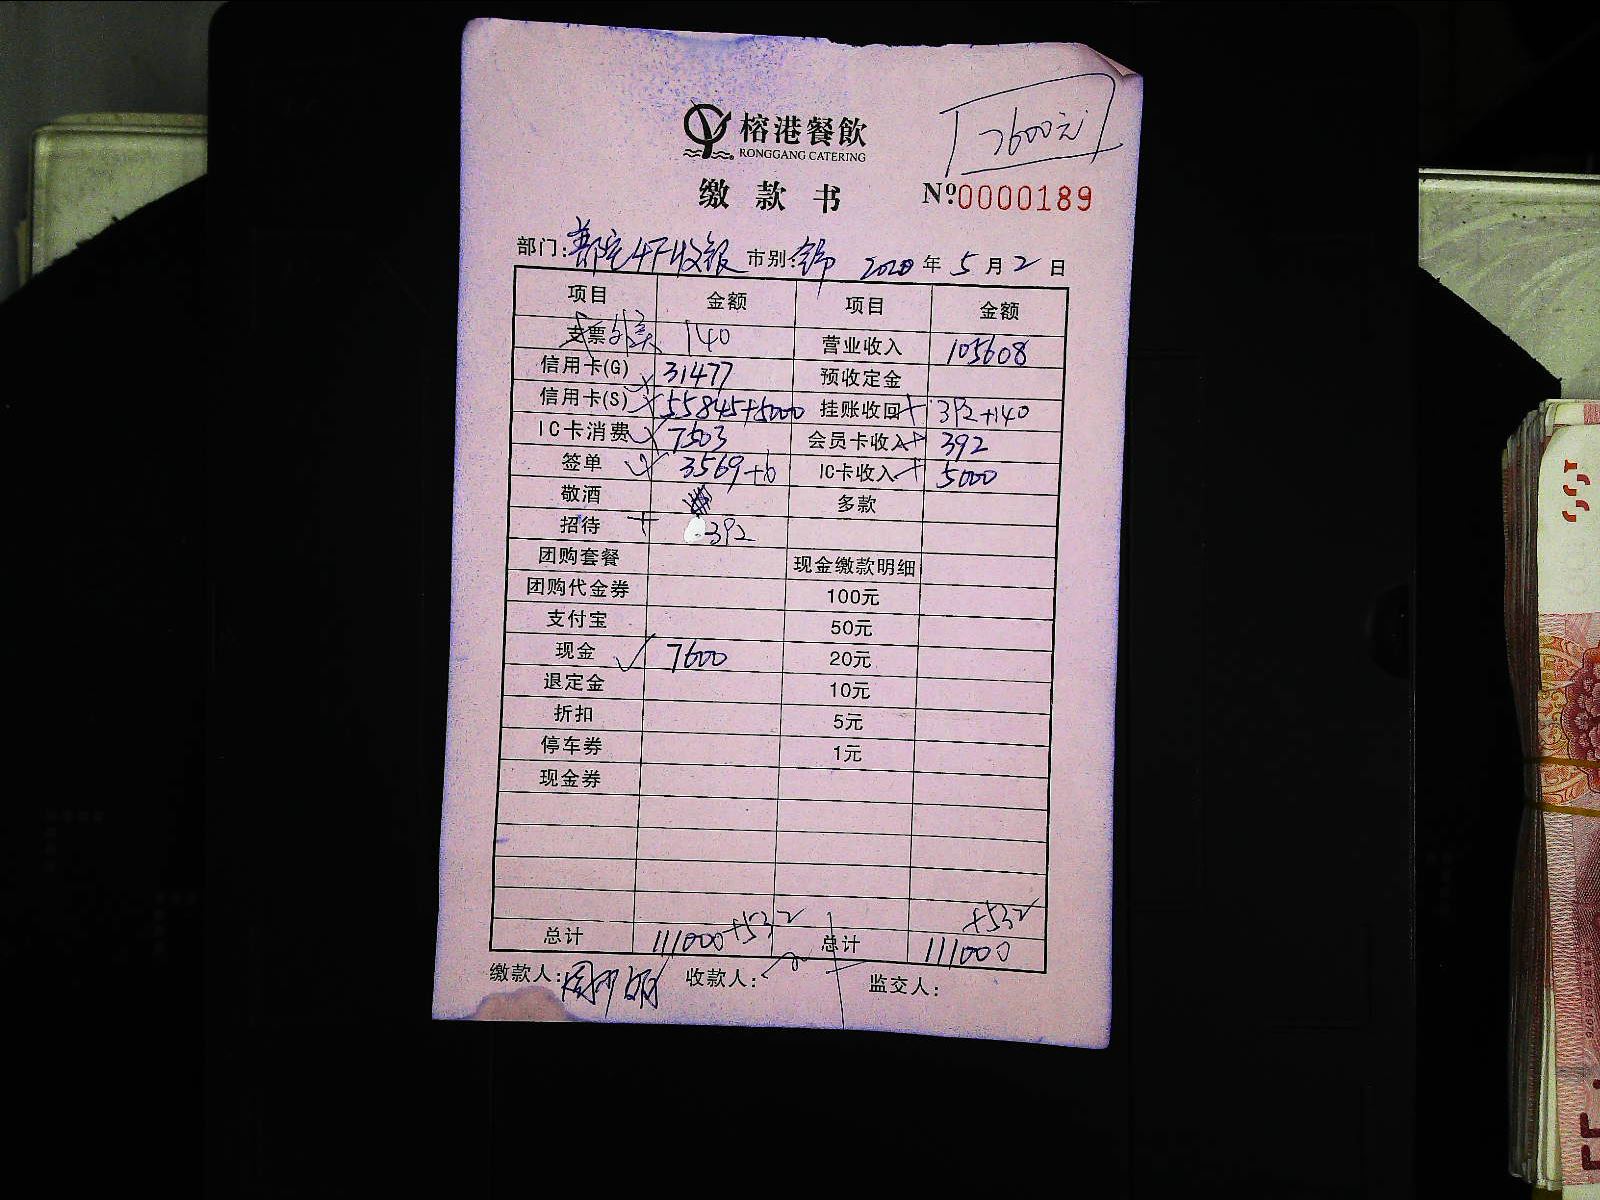 7600元
榕港餐飲
RONGGANG CATERING
缴款书 Nº0000189
部门: 4F收银 市别: 2020年5月2日
项目 金额 项目 金额
支票 外卖 140 营业收入 105608
信用卡(G) 31477 预收定金
信用卡(S) 55845+5000 挂账收回+ 392+140
IC卡消费 7503 会员卡收入+ 392
签单 3569+6 IC卡收入+ 5000
敬酒 多款
招待 + 392
团购套餐 现金缴款明细
团购代金券 100元
支付宝 50元
现金 ✓ 7600 20元
退定金 10元
折扣 5元
停车券 1元
现金券
+532 +532
总计 111000 总计 111000
缴款人: 收款人: 监交人: